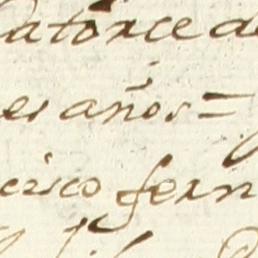 Catorce de
es años =
cisco fern